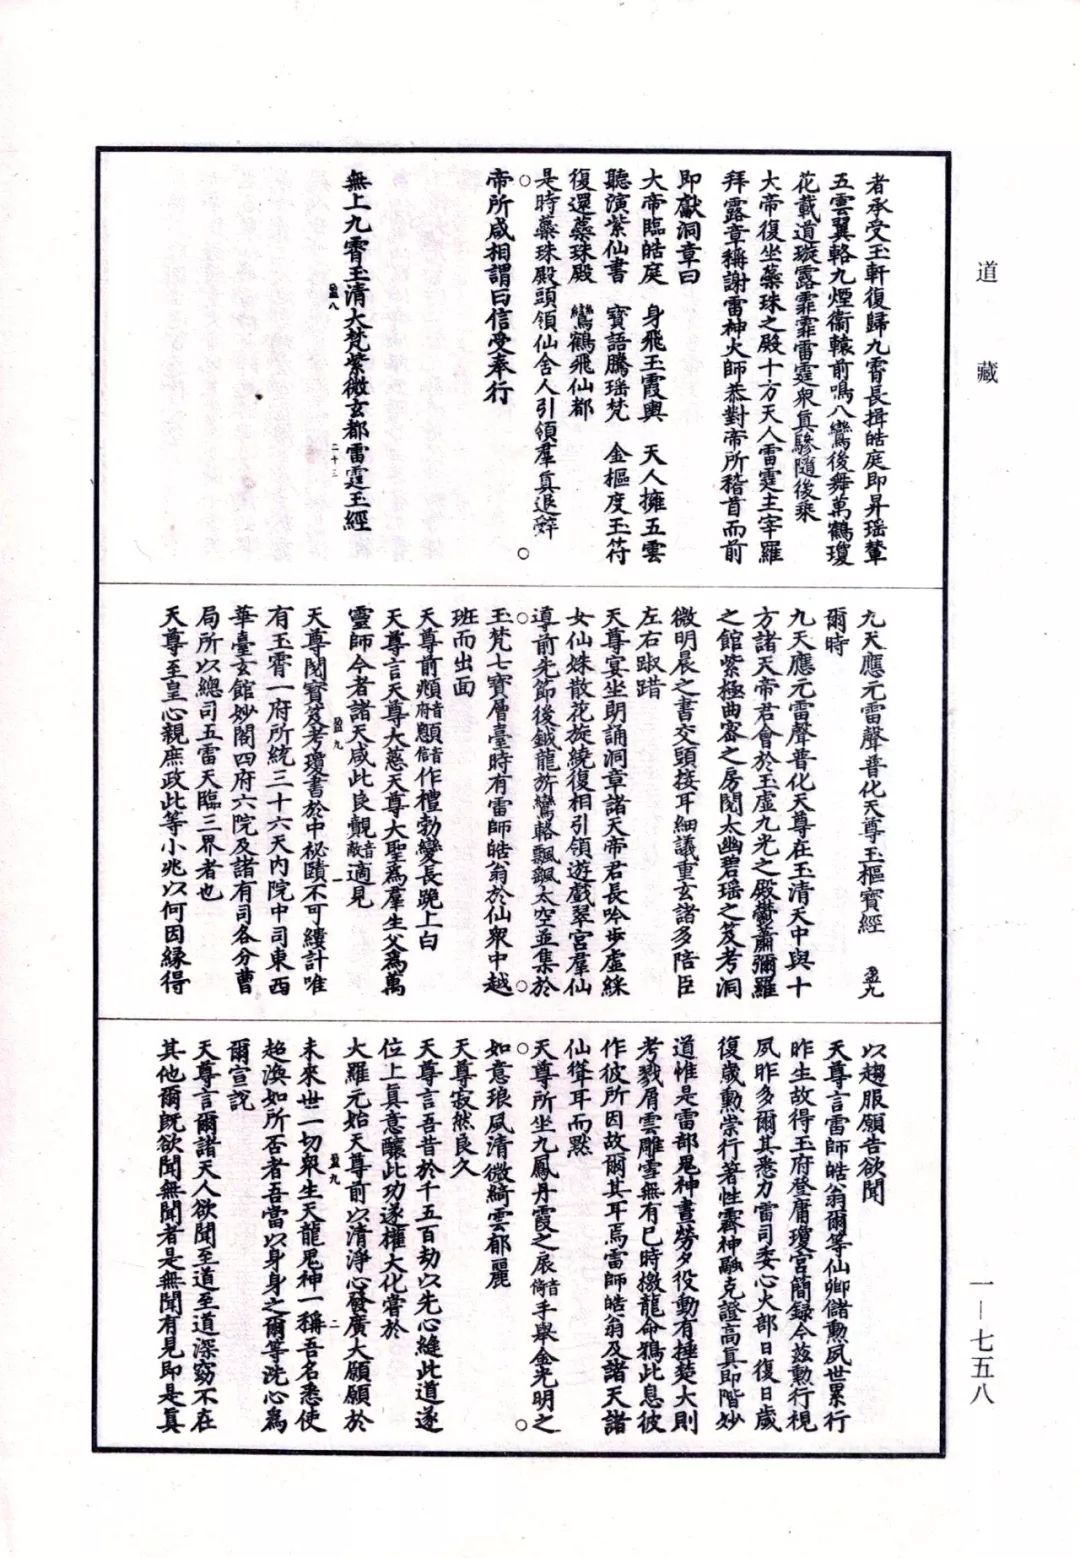 道藏
者承受玉軒復歸九霄長揖皓庭即昇瑶輦
五雲翼輅九煙衞轅前鳴八鸞後舞萬鶴瓊
花載道璇露霏霏雷霆衆真驂隨後乘
大帝復坐蘂珠之殿十方天人雷霆主宰羅
拜露章稱謝雷神火師恭對帝所稽首而前
即獻洞章曰
大帝臨皓庭　身飛玉霞輿　天人擁五雲
聽演紫仙書　寶語騰瑶梵　金樞度玉符
復還蘂珠殿　鸞鶴飛仙都
是時蘂珠殿頭領仙舍人引領羣真退辭
帝所咸相謂曰信受奉行
無上九霄玉清大梵紫微玄都雷霆玉經
盈八
二十三
九天應元雷聲普化天尊玉樞寶經　盈九
爾時
九天應元雷聲普化天尊在玉清天中與十
方諸天帝君會於玉虛九光之殿鬱蕭彌羅
之館紫極曲密之房閱太幽碧瑶之笈考洞
微明晨之書交頭接耳細議重玄諸多陪臣
左右踧踖
天尊宴坐朗誦洞章諸天帝君長吟步虛綵
女仙姝散花旋繞復相引領遊戲翠宮羣仙
導前先節後鉞龍旂鸞輅飄飄太空並集於
玉梵七寶層臺時有雷師皓翁於仙衆中越
班而出面
天尊前頫音府顖音信作禮勃變長跪上白
天尊言天尊大慈天尊大聖爲羣生父爲萬
靈師今者諸天咸此良覿音敵適見
盈九
一
天尊閱寶笈考瓊書於中祕賾不可縷計唯
有玉霄一府所統三十六天內院中司東西
華臺玄館妙閣四府六院及諸有司各分曹
局所以總司五雷天臨三界者也
天尊至皇心親庶政此等小兆以何因緣得
以趨服願告欲聞
天尊言雷師皓翁爾等仙卿儲勳夙世累行
昨生故得玉府登庸瓊宮簡録今兹勳行視
夙昨多爾其悉力雷司委心火部日復日歲
復歲勳崇行著性霽神融克證高真即階妙
道惟是雷部鬼神晝勞夕役動有捶楚大則
考戮屑雲雕雪無有已時檄龍命鴉此息彼
作彼所因故爾其耳焉雷師皓翁及諸天諸
仙聳耳而默
天尊所坐九鳳丹霞之扆音倚手舉金光明之
如意琅風清微綺雲郁麗
天尊寂然良久
天尊言吾昔於千五百劫以先心縫此道遂
位上真意釀此功遂權大化嘗於
大羅元始天尊前以清淨心發廣大願願於
盈九
二
未來世一切衆生天龍鬼神一稱吾名悉使
超渙如所否者吾當以身身之爾等洗心爲
爾宣說
天尊言爾諸天人欲聞至道至道深窈不在
其他爾既欲聞無聞者是無聞有見即是真
一—七五八